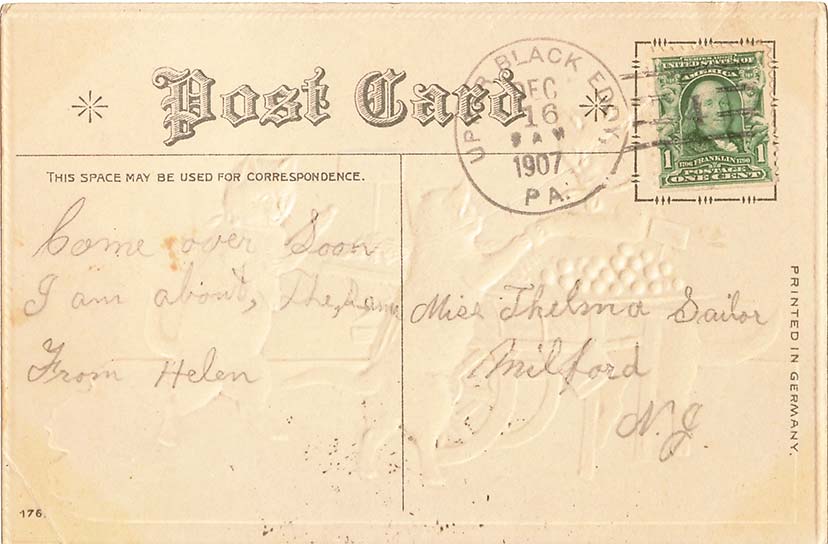 Post Card
UPPER BLACK EDDY,
DEC
16
8 AM
1907
PA.
SERIES 1902
UNITED STATES OF
AMERICA
1 1706 FRANKLIN 1790 1
POSTAGE
ONE CENT
THIS SPACE MAY BE USED FOR CORRESPONDENCE.
Come over Soon
I am about, The Same
From Helen
Miss Thelma Sailor
Milford
N.J.
PRINTED IN GERMANY.
176.